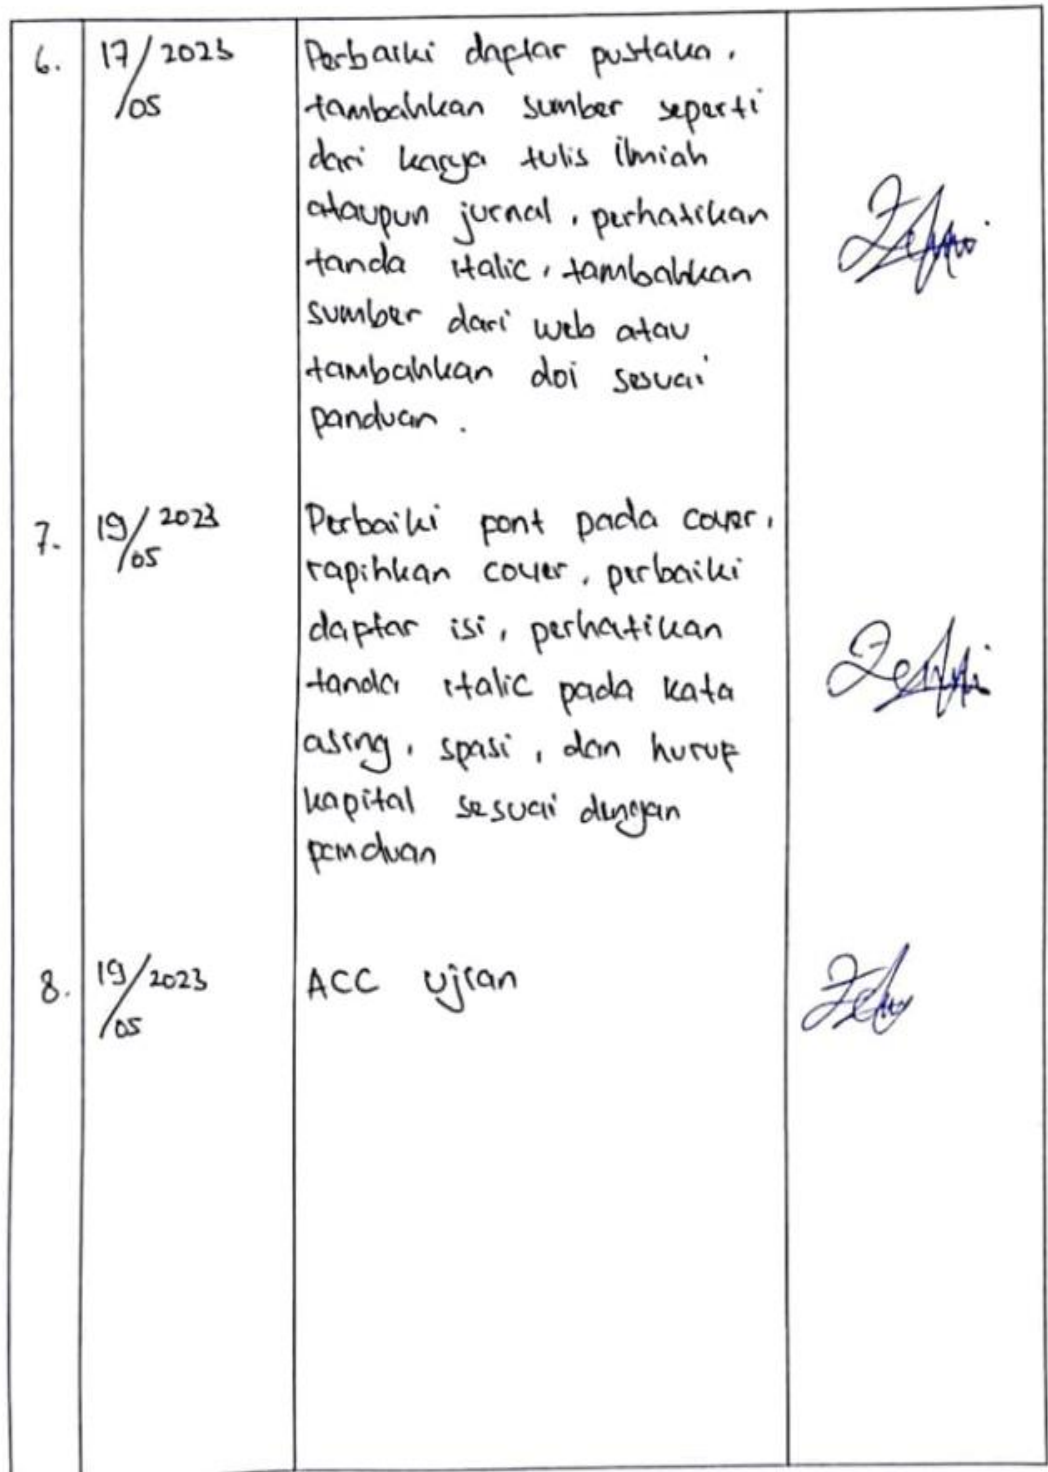 6. 17/05 2023 Perbaiki daftar pustaka,
tambahkan sumber seperti
dari karya tulis ilmiah
ataupun jurnal, perhatikan
tanda italic, tambahkan
sumber dari web atau
tambahkan doi sesuai
panduan.
7. 19/05 2023 Perbaiki font pada cover,
rapihkan cover, perbaiki
daftar isi, perhatikan
tanda italic pada kata
asing, spasi, dan huruf
kapital sesuai dengan
panduan
8. 19/05 2023 ACC Ujian